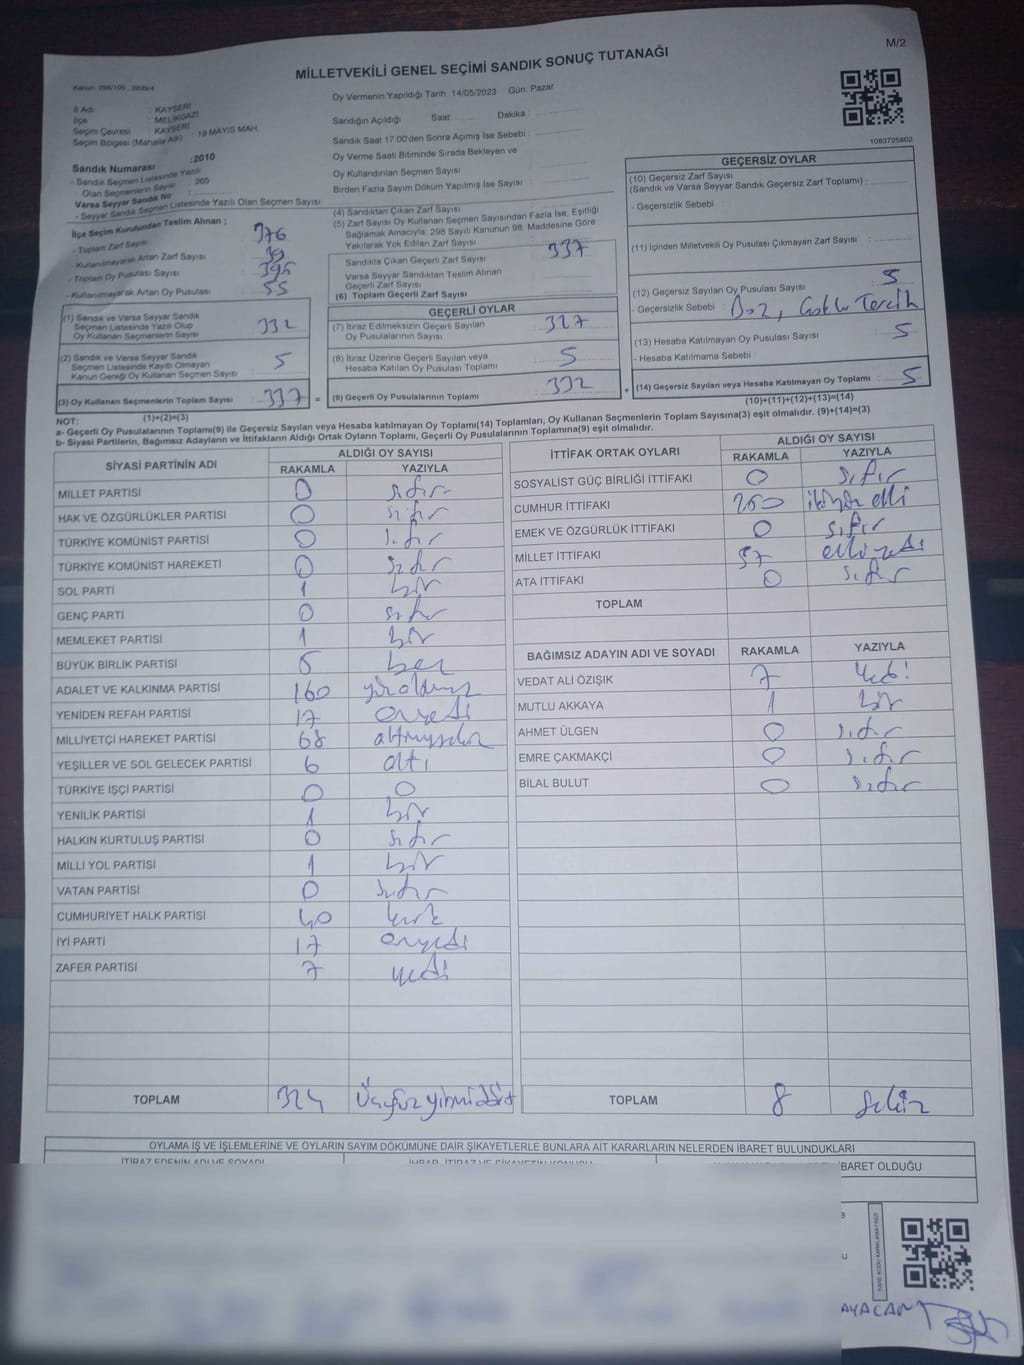 M/2
MİLLETVEKİLİ GENEL SEÇİMİ SANDIK SONUÇ TUTANAĞI
İl Adı : KAYSERİ
İlçe : MELİKGAZİ
Seçim Çevresi : KAYSERİ
Seçim Bölgesi (Mahalle Adı) : 19 MAYIS MAH.
Sandık Numarası : 2010
- Sandık Seçmen Listesinde Yazılı Olan Seçmenlerin Sayısı : 365
Varsa Seyyar Sandık No
- Seyyar Sandık Seçmen Listesinde Yazılı Olan Seçmen Sayısı
Oy Vermenin Yapıldığı Tarih :14/05/2023 Gün: Pazar
Sandığın Açıldığı Saat: Dakika :
Sandık Saat 17.00'den Sonra Açımış İse Sebebi :
Oy Verme Saati Bitiminde Sırada Bekleyen ve
Oy Kullandırılan Seçmen Sayısı
Birden Fazla Sayım Döküm Yapılmış İse Sayısı :
1083725802
İlçe Seçim Kurulundan Teslim Alınan ;
- Toplam Zarf Sayısı 376
- Kullanılmayarak Artan Zarf Sayısı 39
- Toplam Oy Pusulası Sayısı 395
- Kullanılmayarak Artan Oy Pusulası 55
(1) Sandık ve Varsa Seyyar Sandık
Seçmen Listesinde Yazılı Olup
Oy Kullanan Seçmenlerin Sayısı 332
(2) Sandık ve Varsa Seyyar Sandık
Seçmen Listesinde Kayıtlı Olmayan
Kanun Gereği Oy Kullanan Seçmen Sayısı 5
(3) Oy Kullanan Seçmenlerin Toplam Sayısı : 337 =
(4) Sandıktan Çıkan Zarf Sayısı
(5) Zarf Sayısı Oy Kullanan Seçmen Sayısından Fazla İse, Eşitliği
Sağlamak Amacıyla; 298 Sayılı Kanunun 98. Maddesine Göre
Yakılarak Yok Edilen Zarf Sayısı
Sandıkta Çıkan Geçerli Zarf Sayısı 337
Varsa Seyyar Sandıktan Teslim Alınan
Geçerli Zarf Sayısı
(6) Toplam Geçerli Zarf Sayısı
GEÇERLİ OYLAR
(7) İtiraz Edilmeksizin Geçerli Sayılan
Oy Pusulalarının Sayısı 327
(8) İtiraz Üzerine Geçerli Sayılan veya
Hesaba Katılan Oy Pusulası Toplamı 5
(9) Geçerli Oy Pusulalarının Toplamı 332 +
GEÇERSİZ OYLAR
(10) Geçersiz Zarf Sayısı
(Sandık ve Varsa Seyyar Sandık Geçersiz Zarf Toplamı) :
- Geçersizlik Sebebi
(11) İçinden Milletvekili Oy Pusulası Çıkmayan Zarf Sayısı
(12) Geçersiz Sayılan Oy Pusulası Sayısı 5
- Geçersizlik Sebebi : Boz, Çoklu Tercih
(13) Hesaba Katılmayan Oy Pusulası Sayısı 5
- Hesaba Katılmama Sebebi
(14) Geçersiz Sayılan veya Hesaba Katılmayan Oy Toplamı : 5
(1)+(2)=(3)
(10)+(11)+(12)+(13)=(14)
NOT:
a- Geçerli Oy Pusulalarının Toplamı(9) ile Geçersiz Sayılan veya Hesaba katılmayan Oy Toplamı(14) Toplamları, Oy Kullanan Seçmenlerin Toplam Sayısına(3) eşit olmalıdır. (9)+(14)=(3)
b- Siyasi Partilerin, Bağımsız Adayların ve İttifakların Aldığı Ortak Oyların Toplamı, Geçerli Oy Pusulalarının Toplamına(9) eşit olmalıdır.
SİYASİ PARTİNİN ADI ALDIĞI OY SAYISI
RAKAMLA YAZIYLA
MİLLET PARTİSİ 0 sıfır
HAK VE ÖZGÜRLÜKLER PARTİSİ 0 sıfır
TÜRKİYE KOMÜNİST PARTİSİ 0 sıfır
TÜRKİYE KOMÜNİST HAREKETİ 0 sıfır
SOL PARTİ 1 bir
GENÇ PARTİ 0 sıfır
MEMLEKET PARTİSİ 1 bir
BÜYÜK BİRLİK PARTİSİ 5 beş
ADALET VE KALKINMA PARTİSİ 160 yüzaltmış
YENİDEN REFAH PARTİSİ 17 onyedi
MİLLİYETÇİ HAREKET PARTİSİ 68 altmışsekiz
YEŞİLLER VE SOL GELECEK PARTİSİ 6 altı
TÜRKİYE İŞÇİ PARTİSİ 0 0
YENİLİK PARTİSİ 1 bir
HALKIN KURTULUŞ PARTİSİ 0 sıfır
MİLLİ YOL PARTİSİ 1 bir
VATAN PARTİSİ 0 sıfır
CUMHURİYET HALK PARTİSİ 40 kırk
İYİ PARTİ 17 onyedi
ZAFER PARTİSİ 7 yedi
TOPLAM 324 Üçyüzyirmidört
İTTİFAK ORTAK OYLARI ALDIĞI OY SAYISI
RAKAMLA YAZIYLA
SOSYALİST GÜÇ BİRLİĞİ İTTİFAKI 0 sıfır
CUMHUR İTTİFAKI 250 ikiyüz elli
EMEK VE ÖZGÜRLÜK İTTİFAKI 0 sıfır
MİLLET İTTİFAKI 57 elliyedi
ATA İTTİFAKI 0 sıfır
TOPLAM
BAĞIMSIZ ADAYIN ADI VE SOYADI RAKAMLA YAZIYLA
VEDAT ALİ ÖZIŞIK 7 Yedi
MUTLU AKKAYA 1 bir
AHMET ÜLGEN 0 sıfır
EMRE ÇAKMAKÇİ 0 sıfır
BİLAL BULUT 0 sıfır
TOPLAM 8 Sekiz
OYLAMA İŞ VE İŞLEMLERİNE VE OYLARIN SAYIM DÖKÜMÜNE DAİR ŞİKAYETLERLE BUNLARA AİT KARARLARIN NELERDEN İBARET BULUNDUKLARI
İTİRAZ EDENİN ADI VE SOYADI
İBARET OLDUĞU